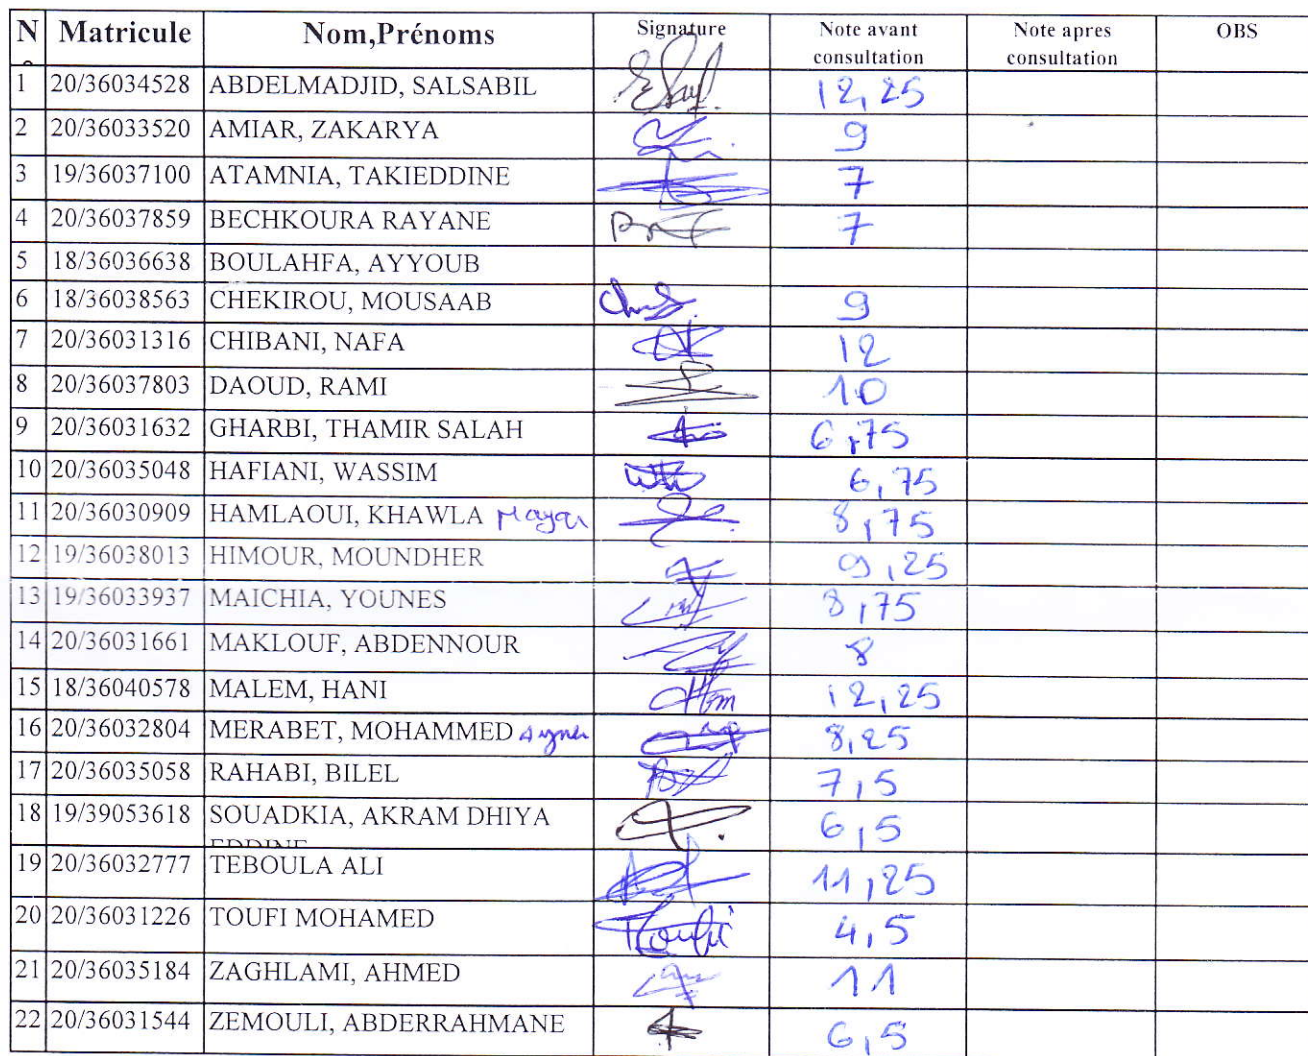 N° Matricule Nom,Prénoms Signature Note avant consultation Note apres consultation OBS
1 20/36034528 ABDELMADJID, SALSABIL 12,25
2 20/36033520 AMIAR, ZAKARYA 9
3 19/36037100 ATAMNIA, TAKIEDDINE 7
4 20/36037859 BECHKOURA RAYANE 7
5 18/36036638 BOULAHFA, AYYOUB
6 18/36038563 CHEKIROU, MOUSAAB 9
7 20/36031316 CHIBANI, NAFA 12
8 20/36037803 DAOUD, RAMI 10
9 20/36031632 GHARBI, THAMIR SALAH 6,75
10 20/36035048 HAFIANI, WASSIM 6,75
11 20/36030909 HAMLAOUI, KHAWLA 8,75
12 19/36038013 HIMOUR, MOUNDHER 9,25
13 19/36033937 MAICHIA, YOUNES 8,75
14 20/36031661 MAKLOUF, ABDENNOUR 8
15 18/36040578 MALEM, HANI 12,25
16 20/36032804 MERABET, MOHAMMED 8,25
17 20/36035058 RAHABI, BILEL 7,5
18 19/39053618 SOUADKIA, AKRAM DHIYA EDDINE 6,5
19 20/36032777 TEBOULA ALI 11,25
20 20/36031226 TOUFI MOHAMED 4,5
21 20/36035184 ZAGHLAMI, AHMED 11
22 20/36031544 ZEMOULI, ABDERRAHMANE 6,5